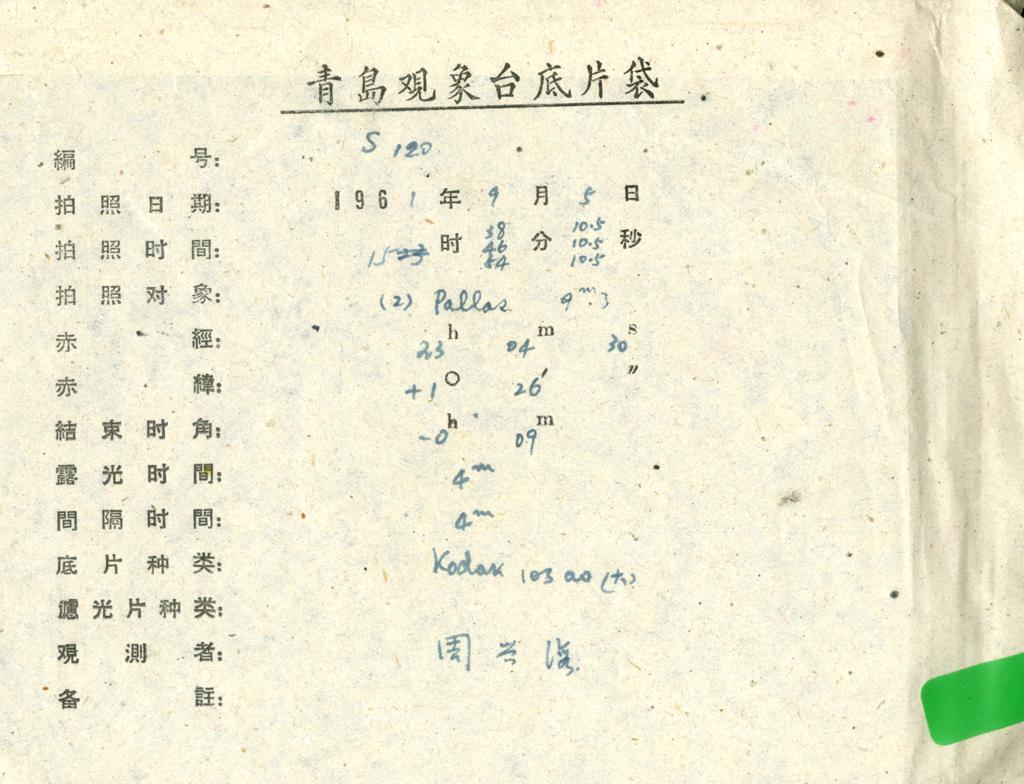 青島观象台底片袋
編号: S 120
拍照日期: 1961年9月5日
拍照时間: 15 时 38 分 10.5 秒
46 10.5
54 10.5
拍照对象: (2) Pallas 9m.3
赤經: 23h 04m 30s
赤緯: +1° 26′ ″
結束时角: -0h 09m
露光时間: 4m
間隔时間: 4m
底片种类: Kodak 103 aO (大)
濾光片种类:
观測者: 周兴海
备註: